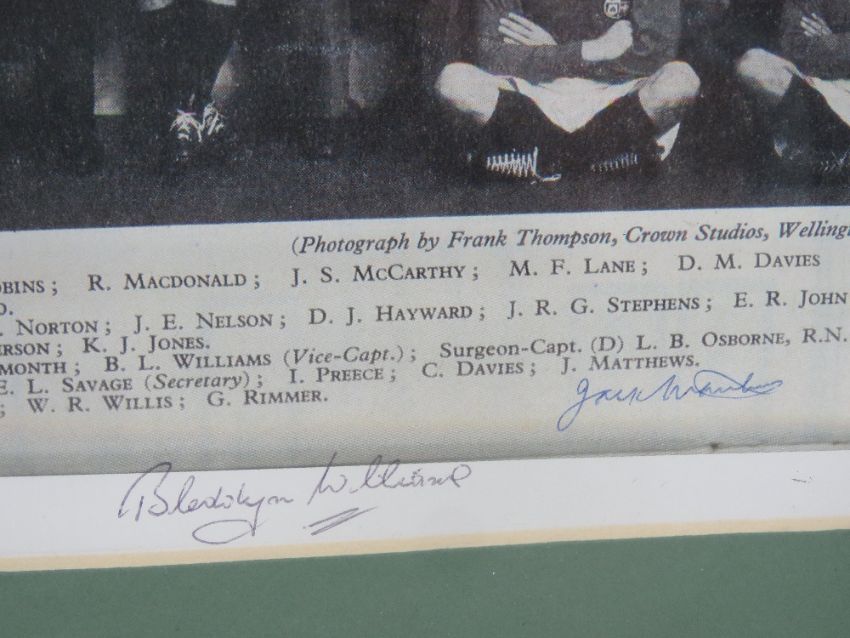 (Photograph by Frank Thompson, Crown Studios, Welling
OBINS; R. MACDONALD; J. S. MCCARTHY; M. F. LANE; D. M. DAVIES
O.
. NORTON; J. E. NELSON; D. J. HAYWARD; J. R. G. STEPHENS; E. R. JOHN
ERSON; K. J. JONES.
MONTH; B. L. WILLIAMS (Vice-Capt.); Surgeon-Capt. (D) L. B. OSBORNE, R.N.
E. L. SAVAGE (Secretary); I. PREECE; C. DAVIES; J. MATTHEWS.
; W. R. WILLIS; G. RIMMER.
Jack Matthews
Bleddyn Williams